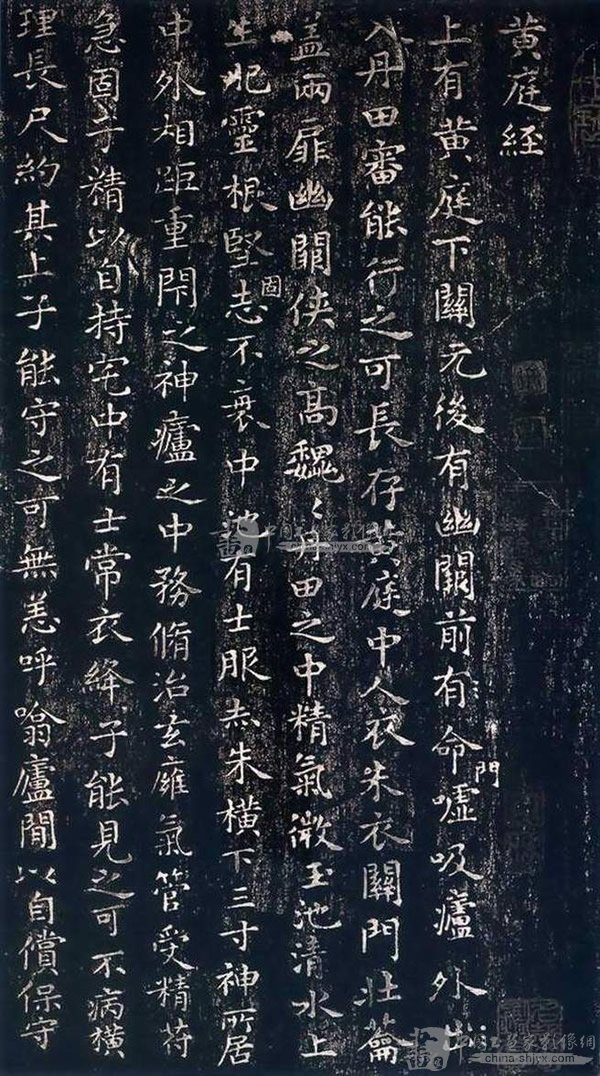 黄庭經
上有黄庭下關元後有幽闕前有命門嘘吸廬外出
入丹田審能行之可長存黄庭中人衣朱衣關門壯籥
盖兩扉幽闕俠之高魏〻丹田之中精氣微玉池清水上
生肥靈根堅固志不衰中池有士服赤朱横下三寸神所居
中外相距重閇之神廬之中務脩治玄廱氣管受精苻
急固子精以自持宅中有士常衣絳子能見之可不病横
理長尺約其上子能守之可無恙呼噏廬間以自償保守
china-shjyx.com